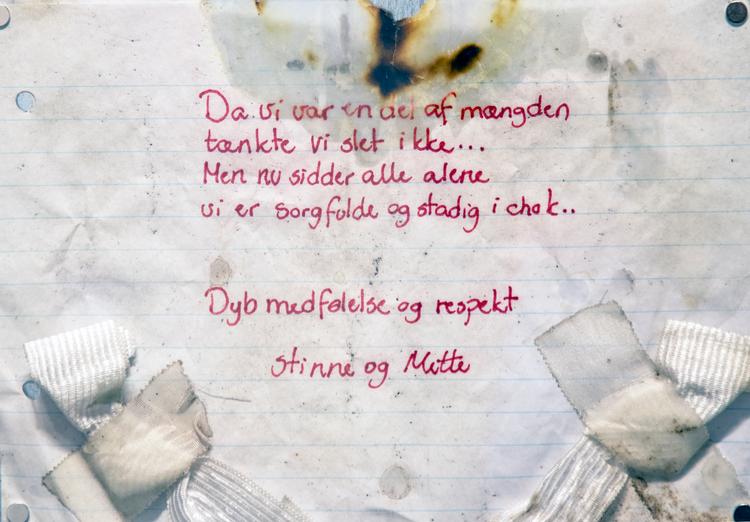 Da vi var en del af mængden
tænkte vi slet ikke...
Men nu sidder alle alene
vi er sorgfulde og stadig i chok..
Dyb medfølelse og respekt
Stinne og Mette